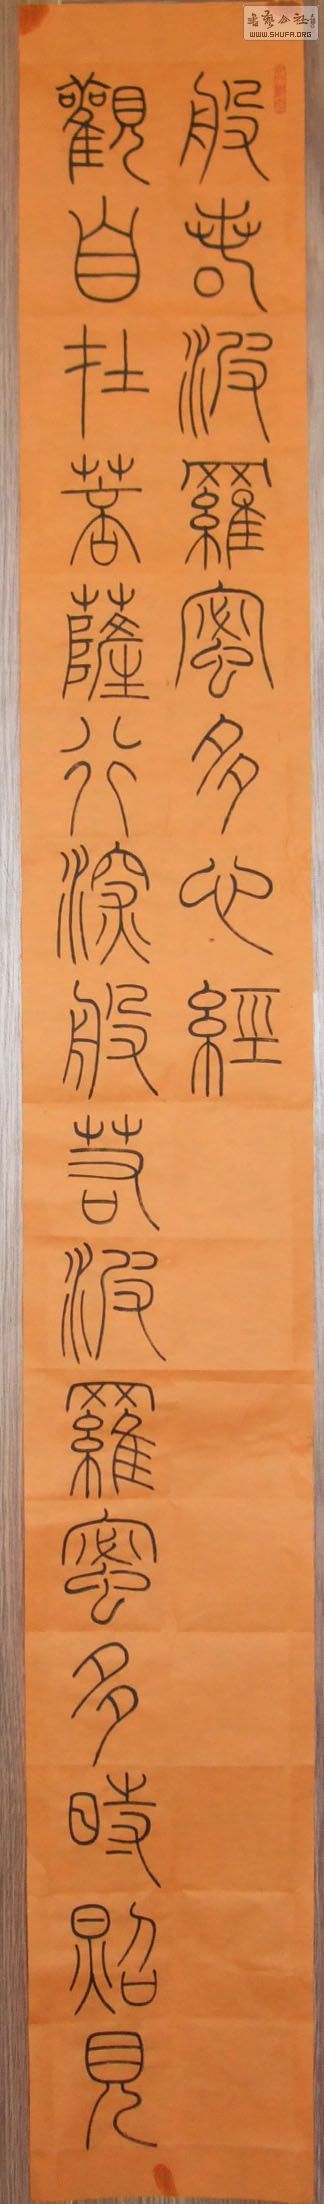 般若波羅蜜多心經
觀自在菩薩行深般若波羅蜜多時照見
WWW.SHUFA.ORG